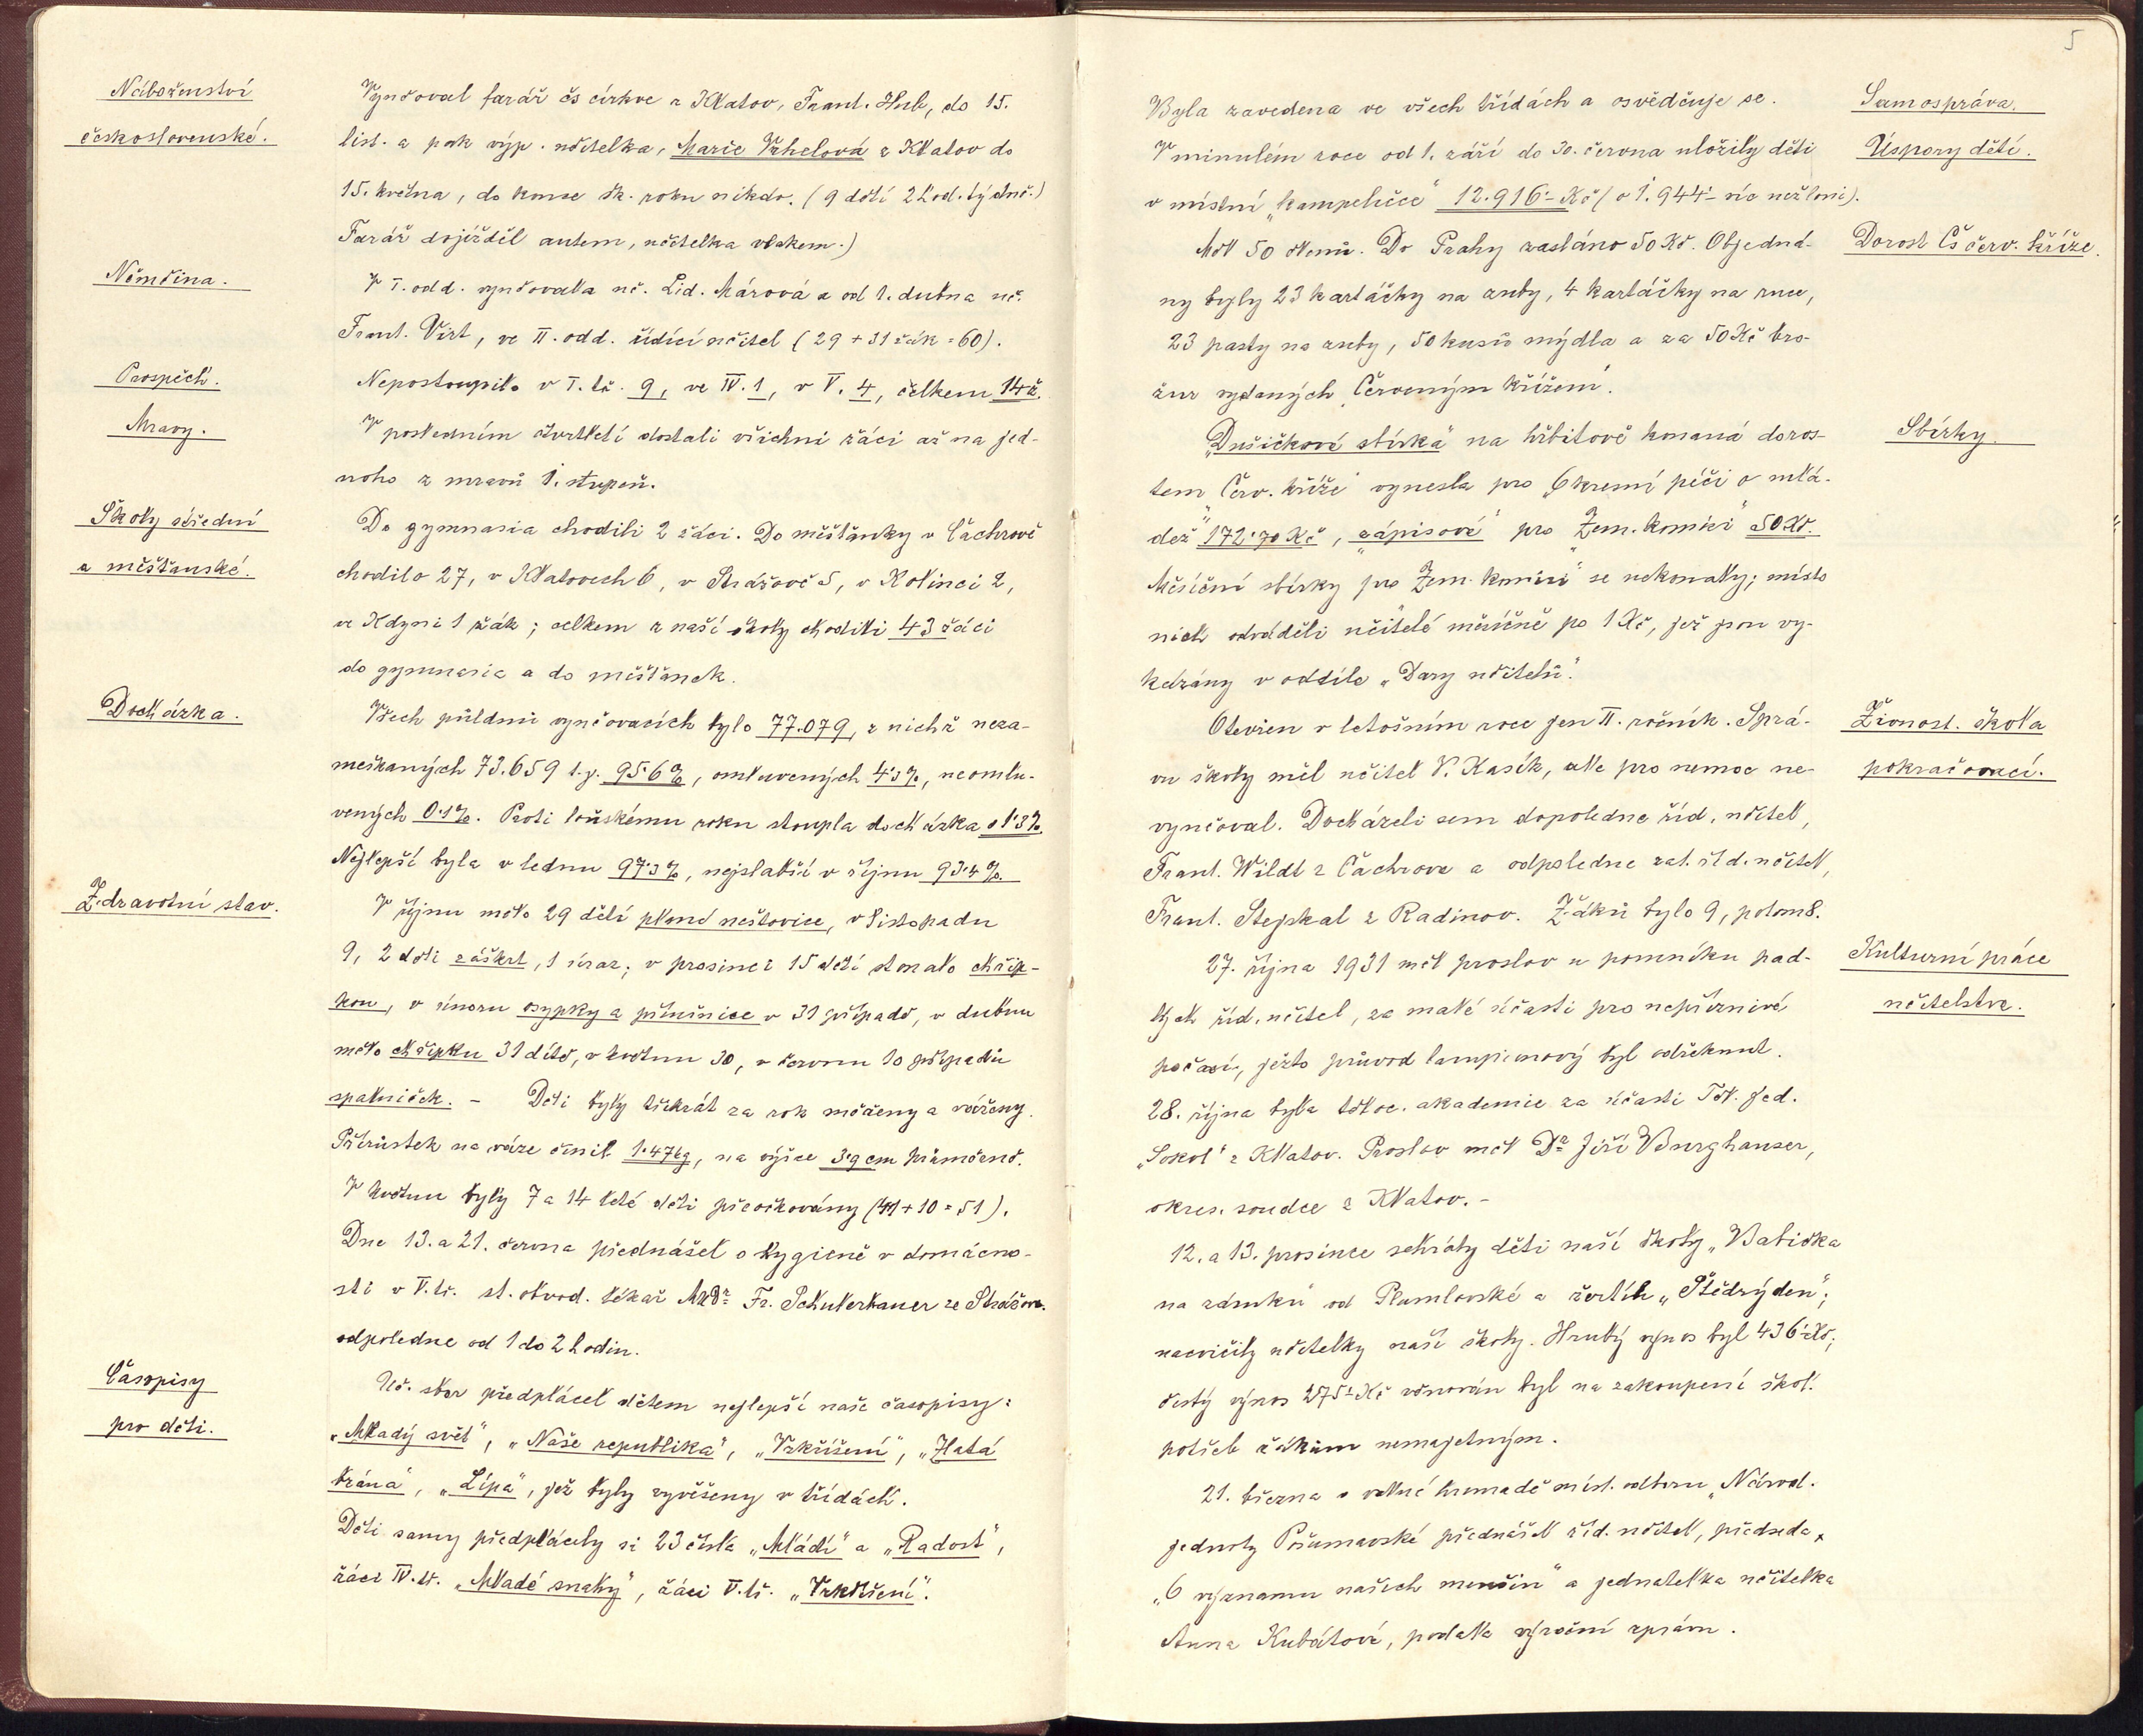 Náboženství
československé.
Vyučoval farář čs církve z Klatov, Frant. Hub, do 15.
list. a pak výp. učitelka, Marie Vrhelová z Klatov do
15. května, do konce šk. roku nikdo. (9 dětí 2 hod. týdně.)
Farář dojížděl autem, učitelka vlakem.)
Němčina.
V I. odd. vyučovala uč. Lid. Márová a od 1. dubna uč.
Frant. Virt, ve II. odd. řídící učitel (29 + 31 žák = 60).
Prospěch.
Nepostoupilo v I. tř. 9, ve IV. 1, v V. 4, celkem 14 ž.
Mravy.
V posledním čtvrtletí dostali všichni žáci až na jed-
noho z mravů 1. stupeň.
Školy střední
a měšťanské.
Do gymnasia chodili 2 žáci. Do měšťanky v Čachrově
chodilo 27, v Klatovech 6, v Strážově 5, v Kolinci 2,
ve Kdyni 1 žák; celkem z naší školy chodili 43 žáci
do gymnasia a do měšťanek.
Docházka.
Všech půldnů vyučovacích bylo 77.079, z nichž neza-
meškaných 73.659 t.j. 95·6%, omluvených 4·3%, neomlu-
vených 0·1%. Proti loňskému roku stoupla docházka o 1·3%.
Nejlepší byla v lednu 97·3%, nejslabší v říjnu 93·4%.
Zdravotní stav.
V říjnu mělo 29 dětí plané neštovice, v listopadu
9, 2 děti záškrt, 1 úraz; v prosinci 15 dětí stonalo chřip-
kou, v únoru osypky a příušnice v 31 případě, v dubnu
mělo chřipku 31 dítě, v květnu 30, v červnu 10 případů
spalniček. - Děti byly třikrát za rok měřeny a váženy.
Přírůstek na váze činil 1·47 kg, na výšce 3·9 cm průměrně.
V květnu byly 7 a 14 leté děti přeočkovány (41 + 10 = 51).
Dne 13. a 21. června přednášel o hygieně v domácno-
sti v V. tř. st. obvod. lékař MUDr Fr. Schukerbauer ze Strážova
odpoledne od 1 do 2 hodin.
Časopisy
pro děti.
Uč. sbor předplácel dětem nejlepší naše časopisy:
„Mladý svět", „Naše republika", „Vzkříšení", „Zlatá
brána", „Lípa", jež byly vyvěšeny v třídách.
Děti samy předplácely si 23 čísla „Mládí" a „Radost",
žáci IV. tř. „Mladé snahy", žáci V. tř. „Vzkříšení".
5
Byla zavedena ve všech třídách a osvědčuje se.
Samospráva.
V minulém roce od 1. září do 30. června uložily děti
Úspory dětí.
v místní „kampeličce" 12.916·- Kč (o 1.944·- víc než loni).
Měl 50 členů. Do Prahy zasláno 50 Kč. Objedná-
Dorost Čs červ. kříže.
ny byly 23 kartáčky na zuby, 4 kartáčky na ruce,
23 pasty na zuby, 50 kusů mýdla a za 50 Kč bro-
žur vydaných Červeným křížem.
„Dušičková sbírka" na hřbitově konaná doros-
Sbírky.
tem Červ. kříže vynesla pro „Okresní péči o mlá-
dež" 172·70 Kč, „zápisové" pro „Zem. komisi" 50 Kč.
Měsíční sbírky „pro Zem. komisi" se nekonaly; místo
nich odváděli učitelé měsíčně po 1 Kč, jež jsou vy-
kázány v oddíle „Dary učitelů".
Otevřen v letošním roce jen II. ročník. Sprá-
Živnost. škola
pokračovací.
vu školy měl učitel V. Kasík, ale pro nemoc ne-
vyučoval. Docházeli sem dopoledne říd. učitel,
Frant. Wildt z Čachrova a odpoledne zat. říd. učitel,
Frant. Stejskal z Radinov. Žáků bylo 9, potom 8.
27. října 1931 měl proslov u pomníku pad-
Kulturní práce
učitelstva.
lých říd. učitel, za malé účasti pro nepříznivé
počasí, ježto průvod lampionový byl odřeknut.
28. října byla těloc. akademie za účasti Těl. Jed.
„Sokol" z Klatov. Proslov měl Dr Jiří Burghauser,
okres. soudce z Klatov. -
12. a 13. prosince sehrály děti naší školy „Babička
na zámku" od Plumlovské a žertík „Štědrý den";
nacvičily učitelky naší školy. Hrubý výnos byl 436·- Kč;
čistý výnos 275·- Kč věnován byl na zakoupení škol.
potřeb žákům nemajetným.
21. března v valné hromadě míst. odboru „Národ.
jednoty Pošumavské přednášel říd. učitel, předseda,
„O významu našich menšin" a jednatelka učitelka
Anna Kubátová, podala výroční zprávu.